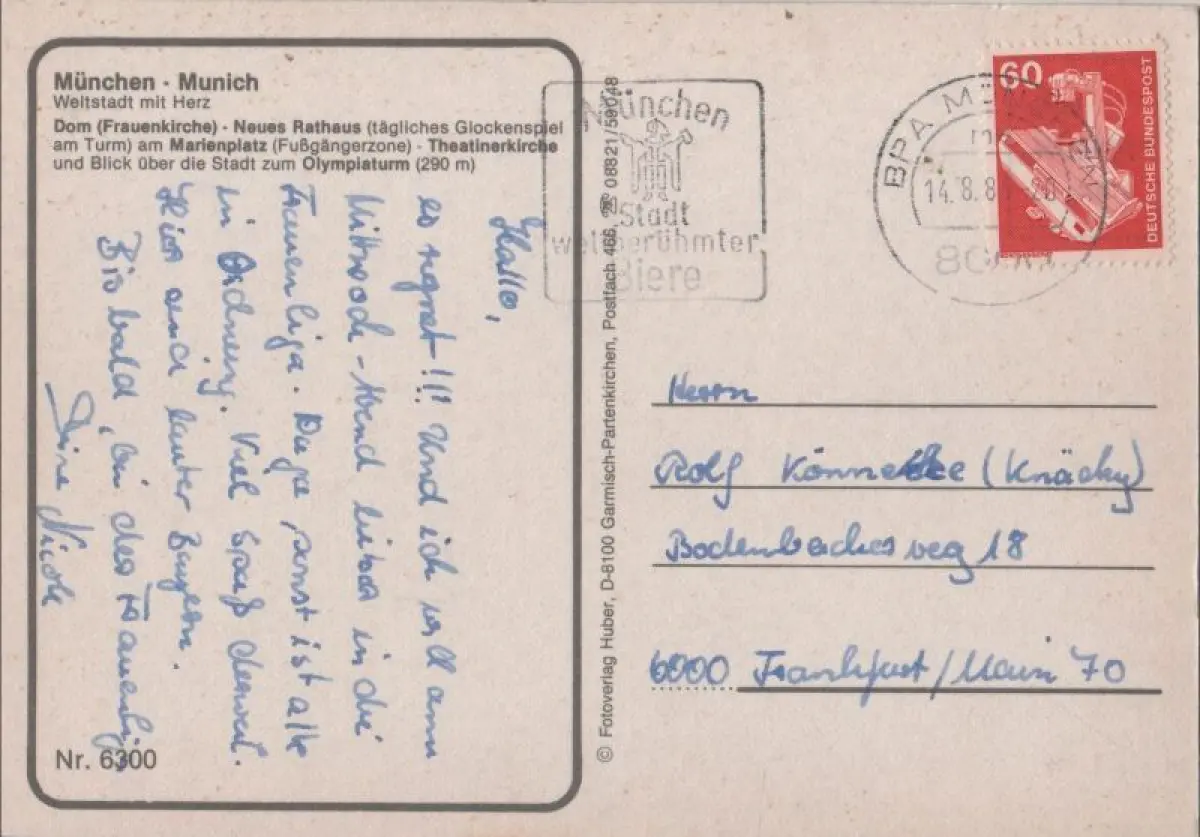 München · Munich
Weltstadt mit Herz
Dom (Frauenkirche) · Neues Rathaus (tägliches Glockenspiel
am Turm) am Marienplatz (Fußgängerzone) · Theatinerkirche
und Blick über die Stadt zum Olympiaturm (290 m)
Hallo,
es regnet!!! Und ich will am
Mittwoch-Abend lieber in die
Frauenliga. Daga, sonst ist alles
in Ordnung. Viel Spaß derweil.
Hier sind lauter Bayern.
Bis bald, bei der Frauenliga
Deine Nicole
Nr. 6300
© Fotoverlag Huber, D-8100 Garmisch-Partenkirchen, Postfach 466, ☏ 08821/59048
München
Stadt
weltberühmter
Biere
BPA MÜNCHEN
14.8.8
60
DEUTSCHE BUNDESPOST
Herrn
Rolf Könnecke (Knäcky)
Bodenbacher weg 18
6000 Frankfurt/Main 70